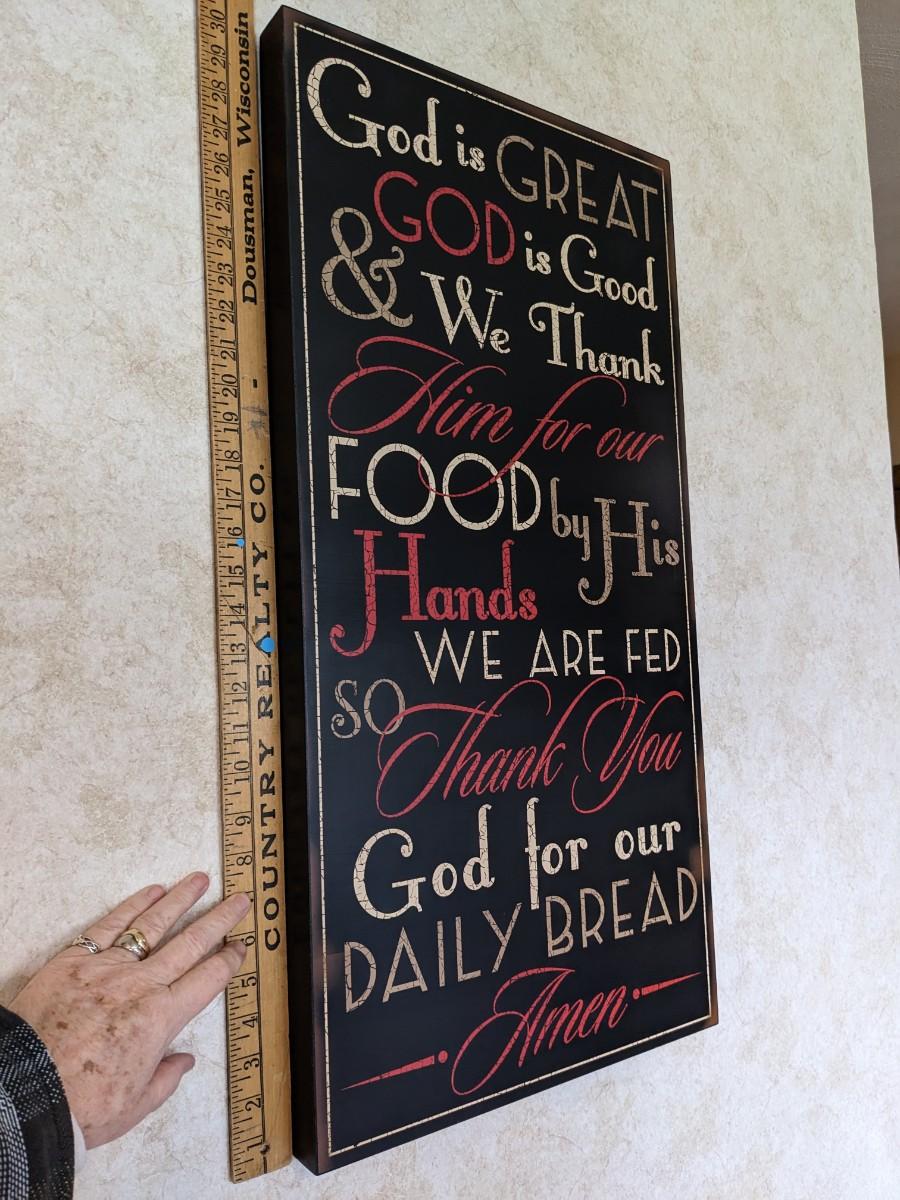 God is GREAT
GOD is Good
& We Thank
Him for our
FOOD by His
Hands
WE ARE FED
SO
Thank You
God for our
DAILY BREAD
Amen
COUNTRY REALTY CO. - Dousman, Wisconsin
1 2 3 4 5 6 8 9 10 11 12 13 14 15 16 17 18 19 20 21 22 23 24 25 26 27 28 29 30